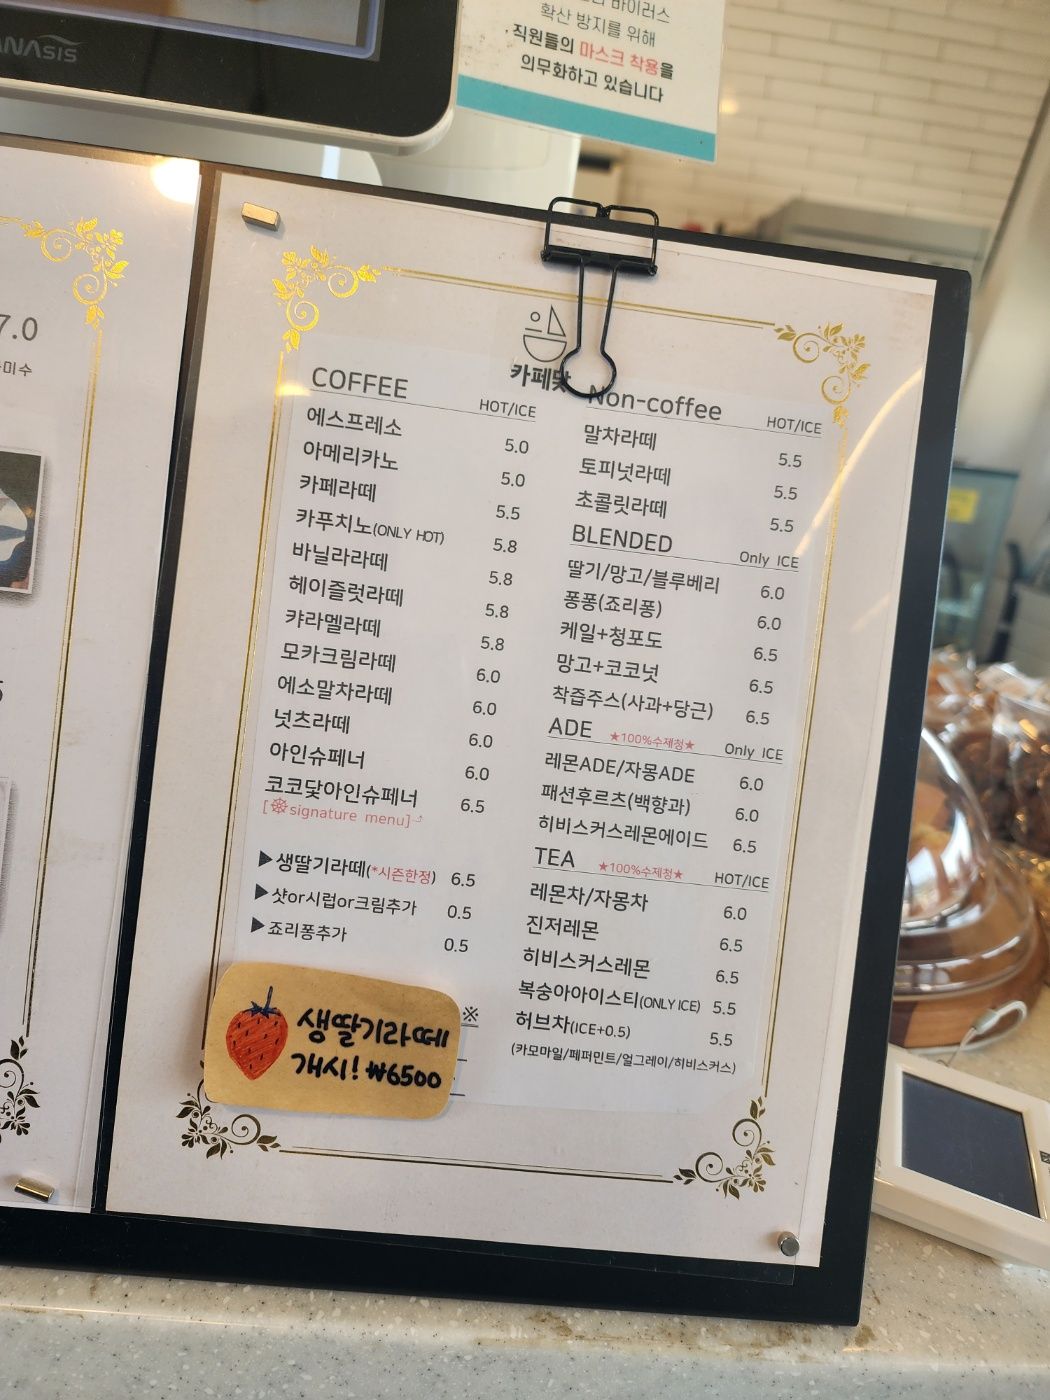 바이러스
확산 방지를 위해
직원들의 마스크 착용을
의무화하고 있습니다
7.0
미수
카페닻
COFFEE
HOT/ICE
에스프레소 5.0
아메리카노 5.0
카페라떼 5.5
카푸치노(ONLY HOT) 5.8
바닐라라떼 5.8
헤이즐럿라떼 5.8
캬라멜라떼 5.8
모카크림라떼 6.0
에소말차라떼 6.0
넛츠라떼 6.0
아인슈페너 6.0
코코닻아인슈페너 6.5
[signature menu]
▶생딸기라떼(*시즌한정) 6.5
▶샷or시럽or크림추가 0.5
▶죠리퐁추가 0.5
※
생딸기라떼
개시! ₩6500
Non-coffee
HOT/ICE
말차라떼 5.5
토피넛라떼 5.5
초콜릿라떼 5.5
BLENDED Only ICE
딸기/망고/블루베리 6.0
퐁퐁(죠리퐁) 6.0
케일+청포도 6.5
망고+코코넛 6.5
착즙주스(사과+당근) 6.5
ADE ★100%수제청★ Only ICE
레몬ADE/자몽ADE 6.0
패션후르츠(백향과) 6.0
히비스커스레몬에이드 6.5
TEA ★100%수제청★ HOT/ICE
레몬차/자몽차 6.0
진저레몬 6.5
히비스커스레몬 6.5
복숭아아이스티(ONLY ICE) 5.5
허브차(ICE+0.5) 5.5
(카모마일/페퍼민트/얼그레이/히비스커스)